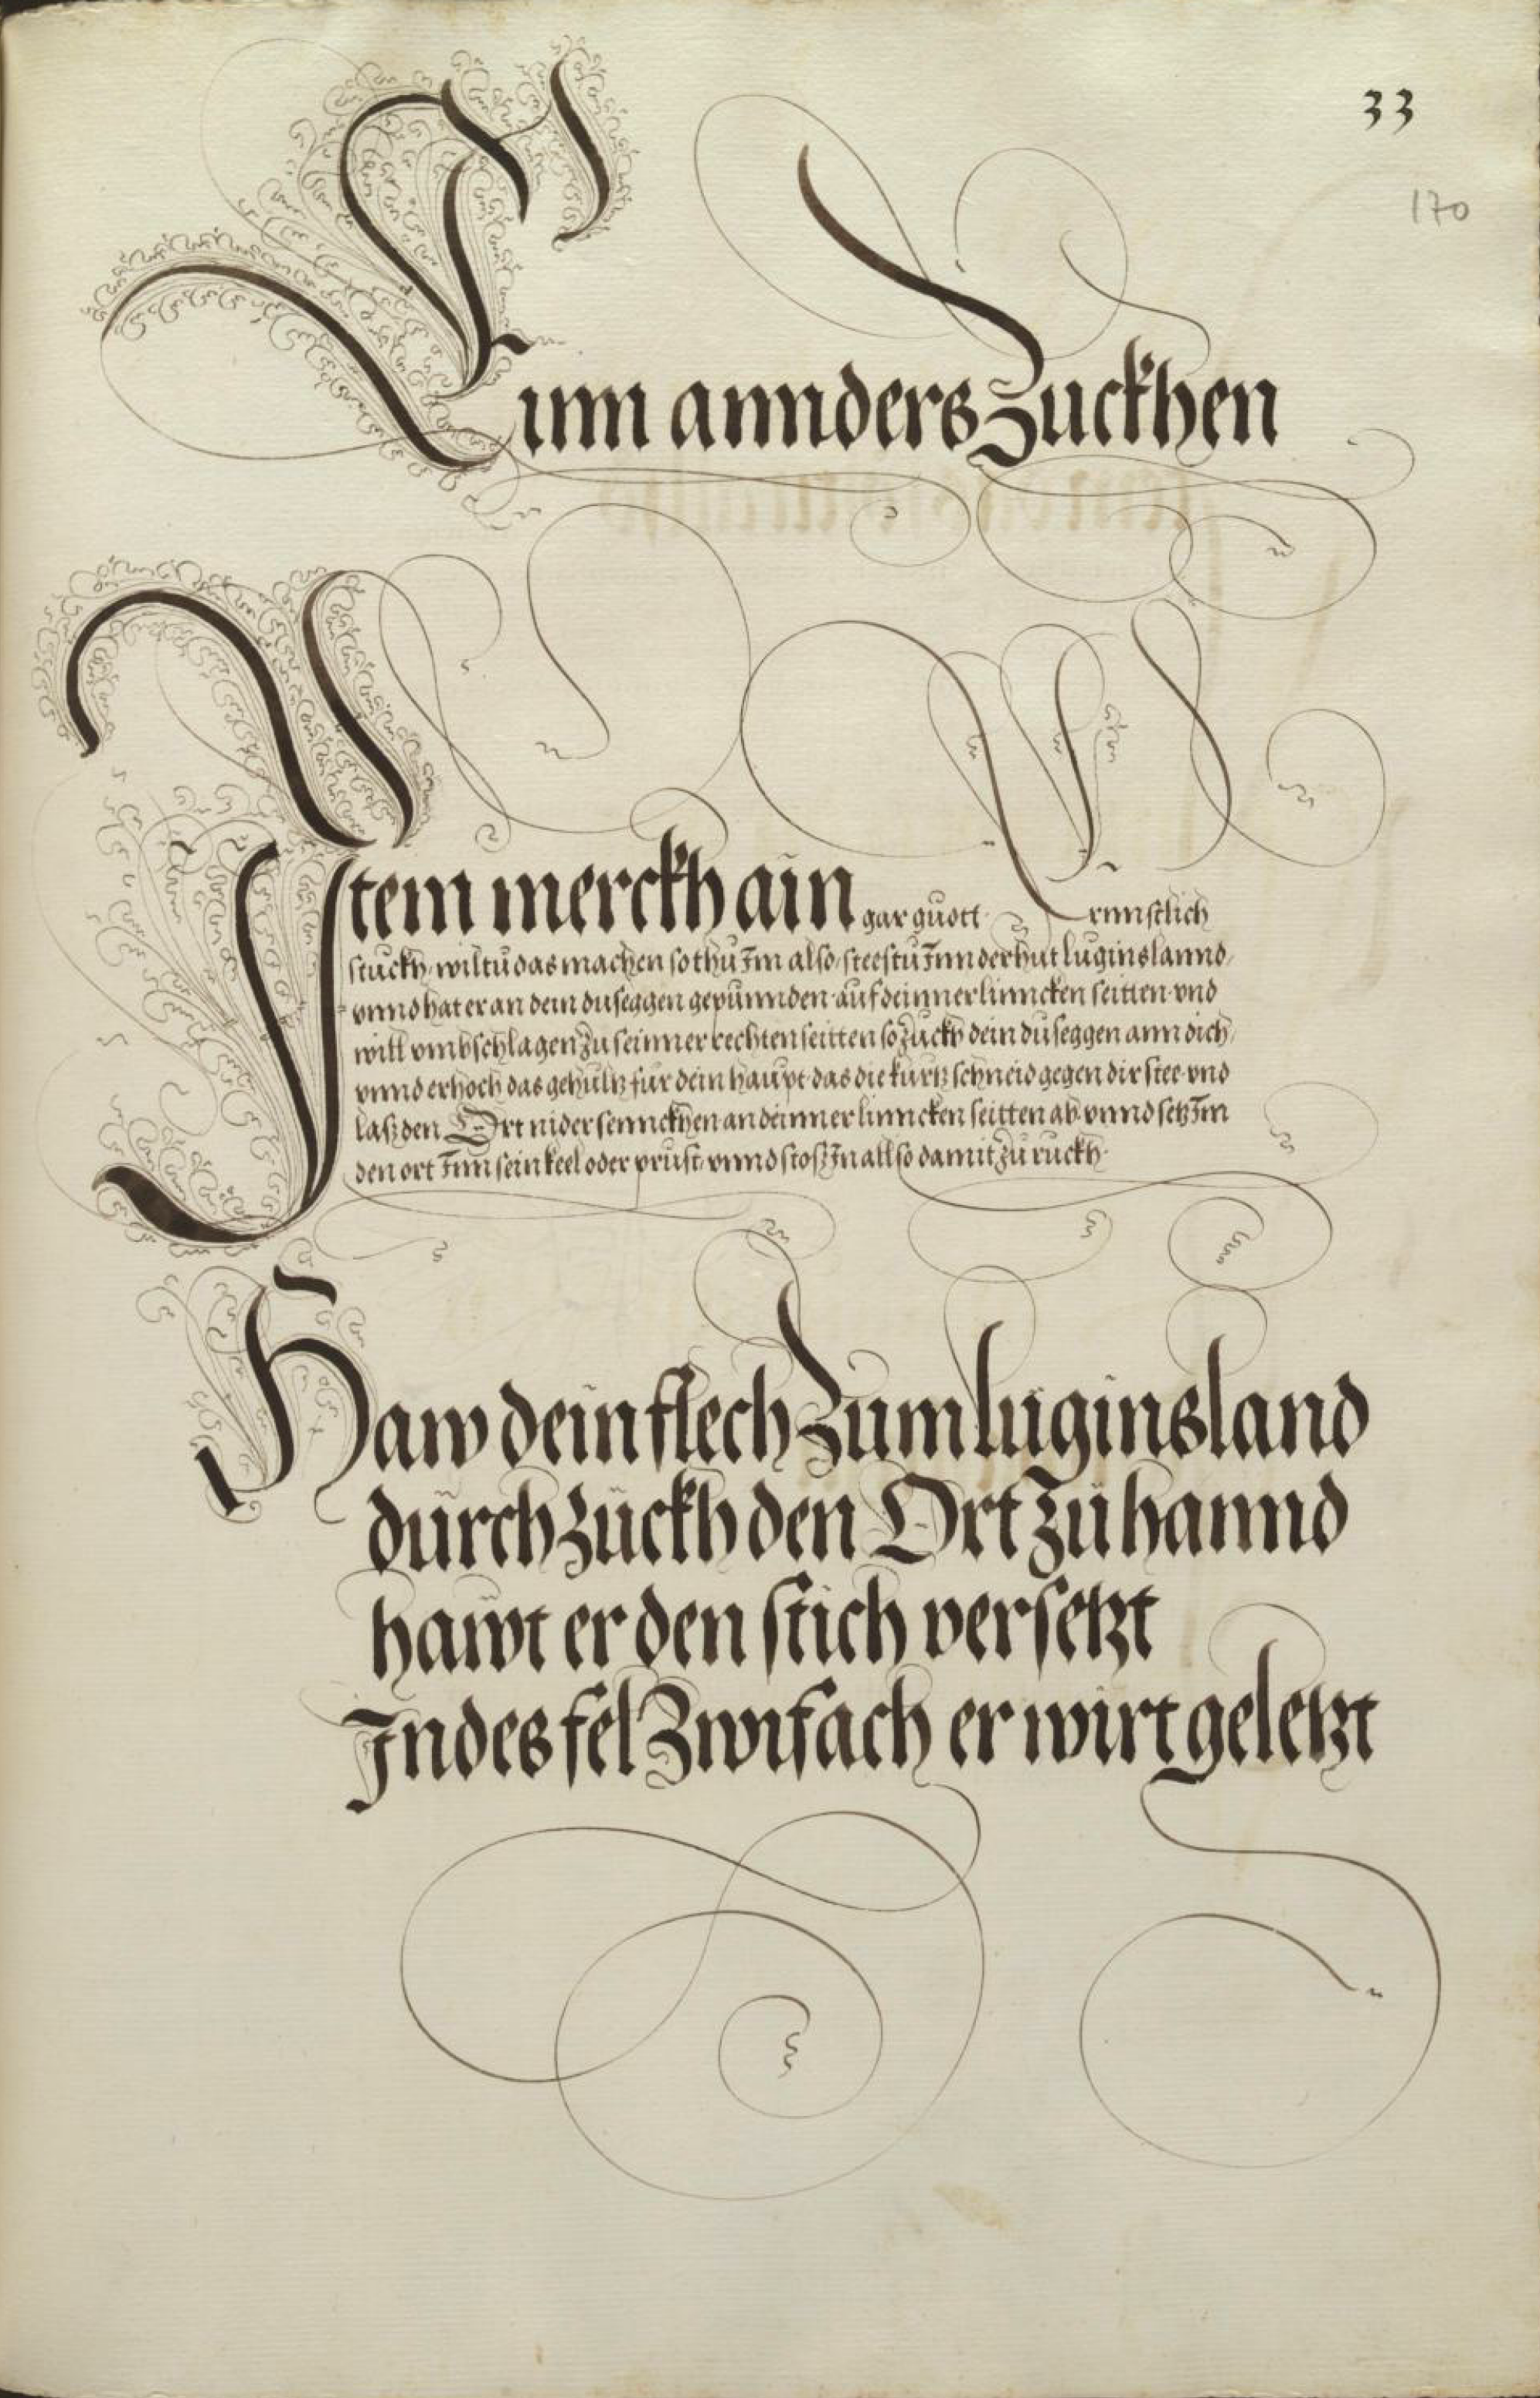 33
170
Einn annders Zuckhen
Item merckh ain gar guott Ernnstlich
stuckh, wiltu das machen so thu Im also, steestu Inn der hut luginslannd,
vnnd hat er an dem duseggen gepunnden auf deinner linncken seitten vnd
will vmbschlagen zu seinner rechten seitten so zuckh dein duseggen ann dich,
vnnd erhoch das gehultz fur dein haupt das die kurtz schneid gegen dir stee vnd
laß den Ort nider sennckhen an deinner linncken seitten ab vnnd setz Im
den ort Inn sein keel oder prust, vnnd stoß In allso damit zu ruckh.
Haw dein flech Zum luginsland
durchzuckh den Ort zu hannd
hawt er den stich versetzt
Indes fel Zwifach er wirt geletzt